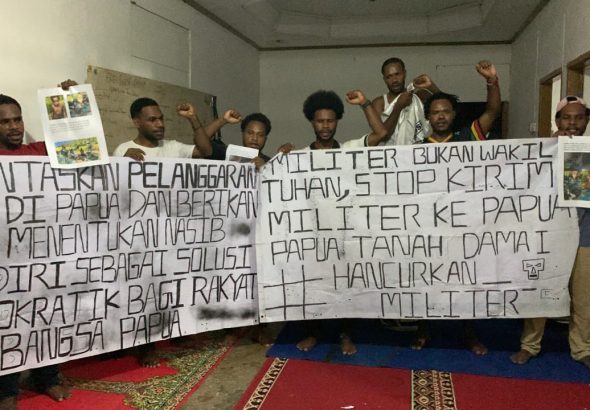 NTASKAN PELANGGARAN
DI PAPUA DAN BERIKAN
MENENTUKAN NASIB
DIRI SEBAGAI SOLUSI
OKRATIK BAGI RAKYAT
BANGSA PAPUA
MILITER BUKAN WAKIL
TUHAN, STOP KIRIM
MILITER KE PAPUA
PAPUA TANAH DAMAI
# HANCURKAN_
MILITER